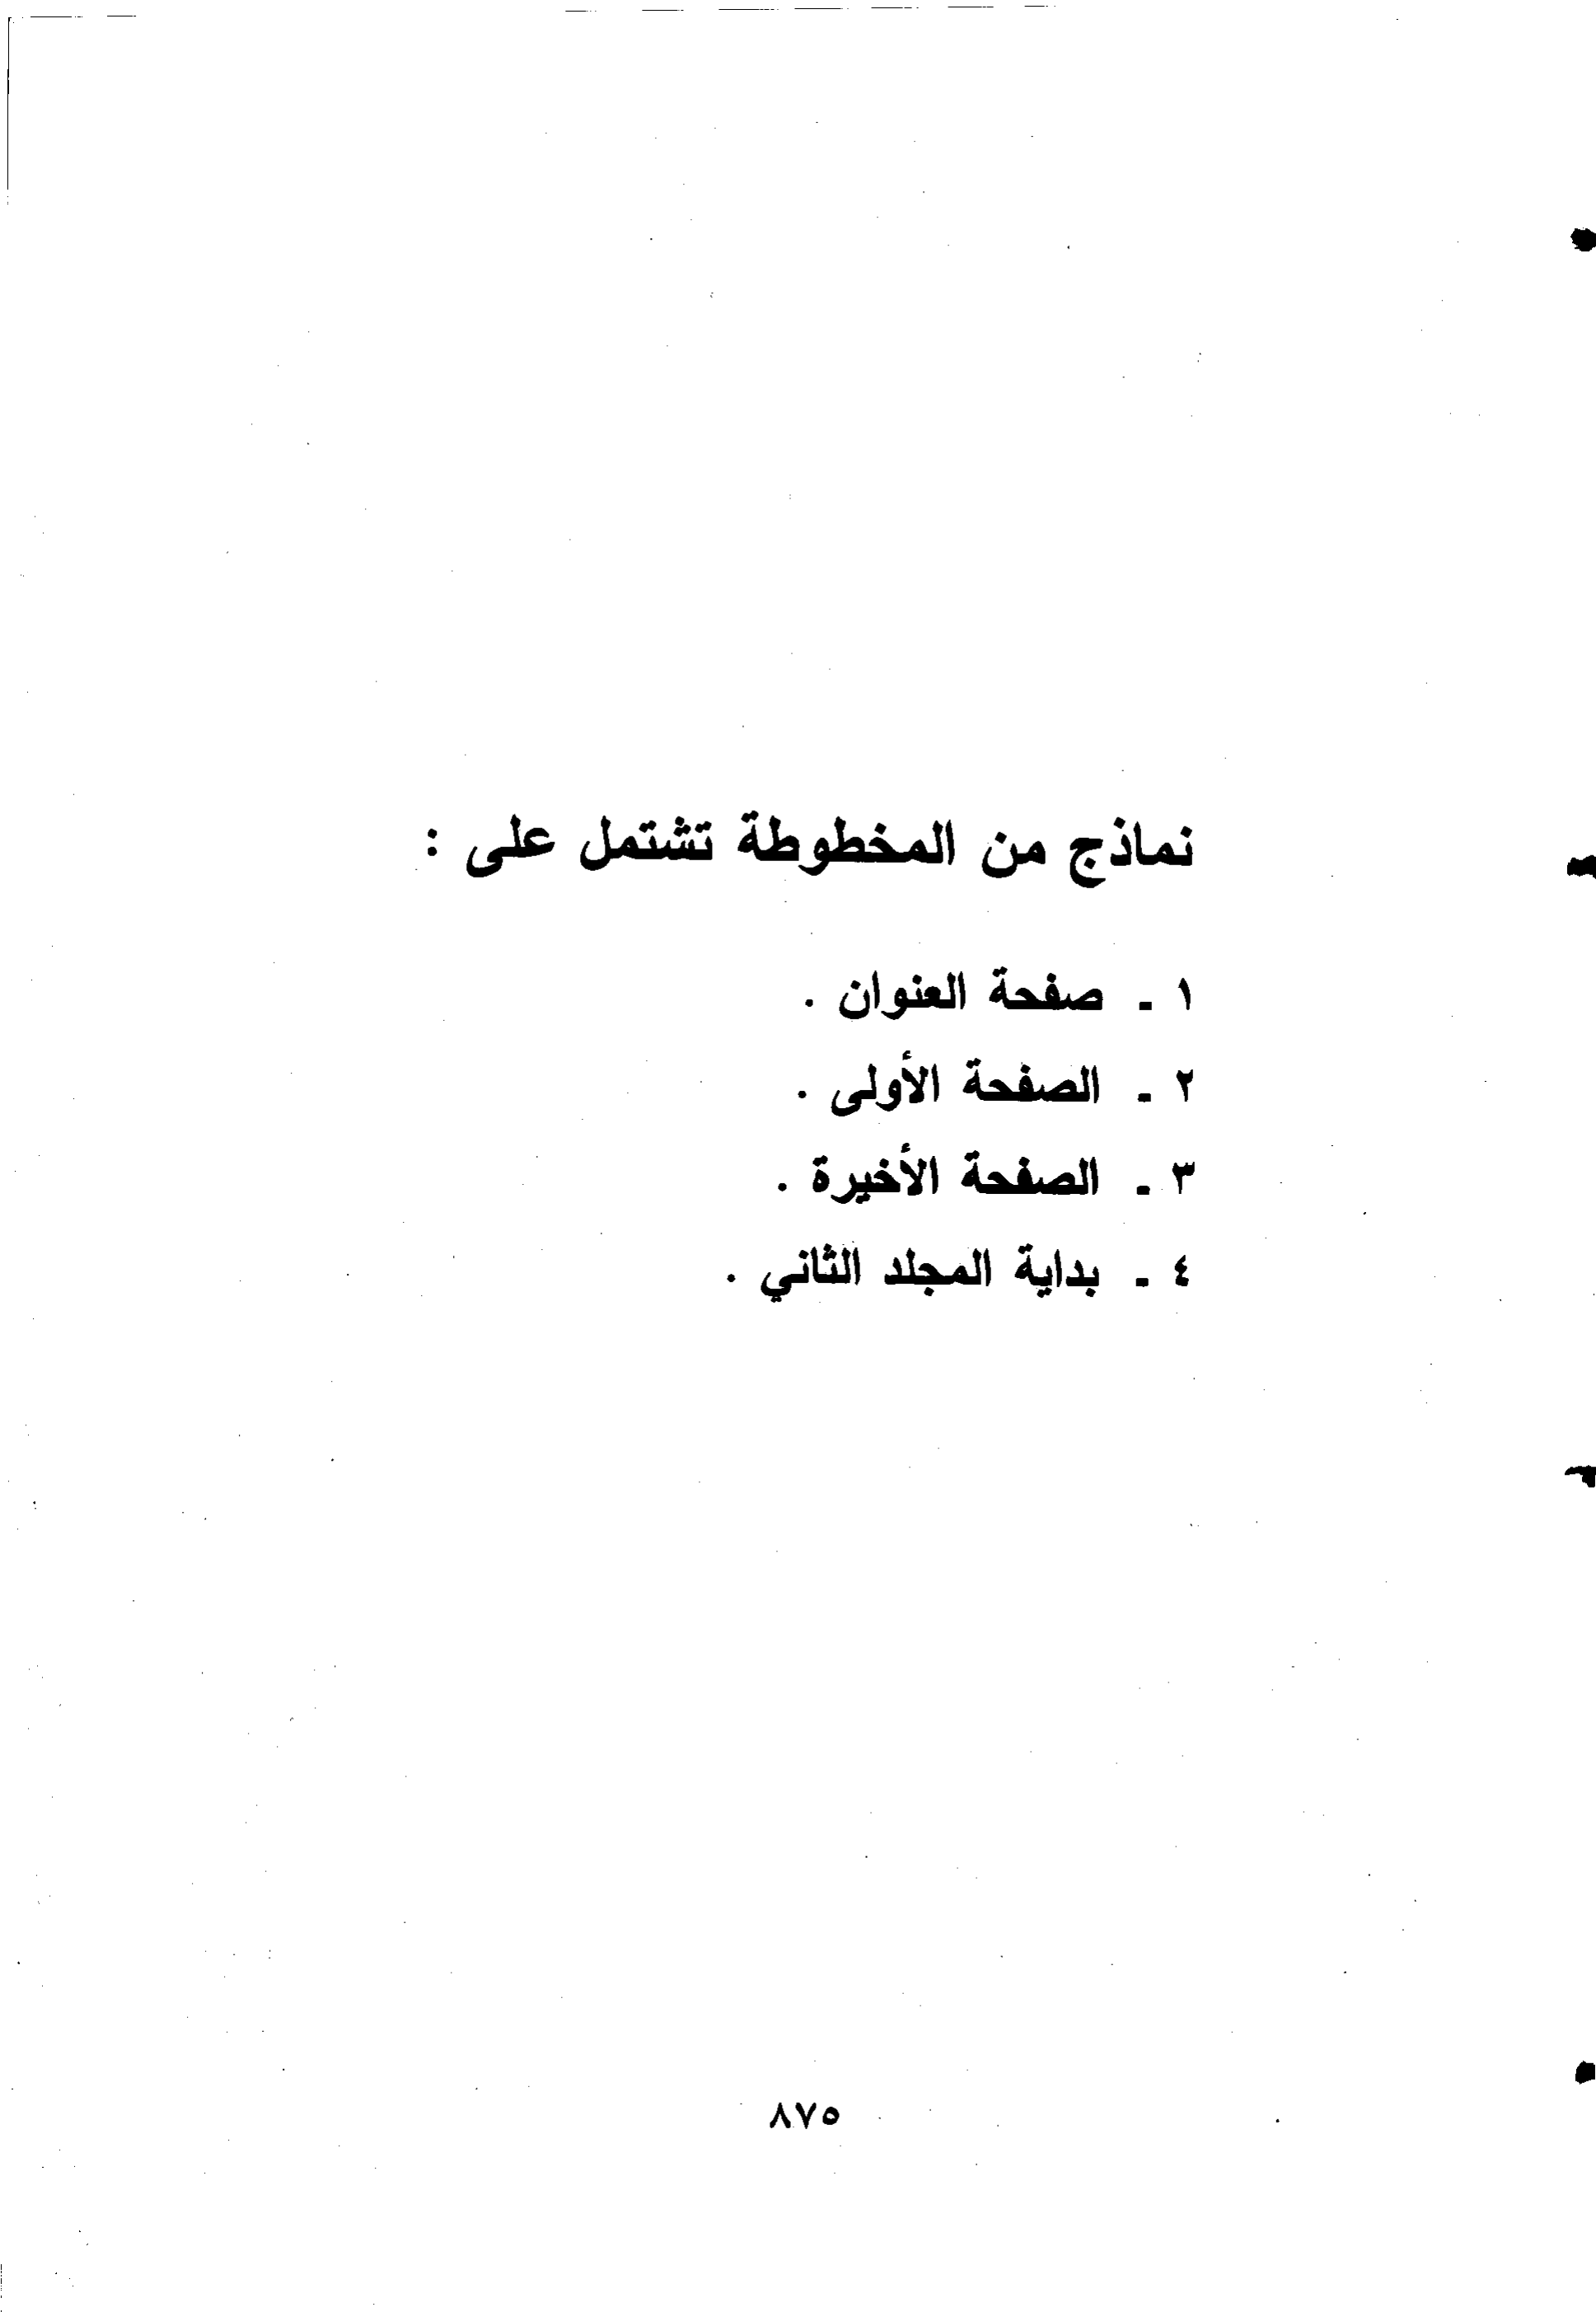 نماذج من المخطوطة تشتمل على :
١ ـ صفحة العنوان .
٢ ـ الصفحة الأولى .
٣ ـ الصفحة الأخيرة .
٤ ـ بداية المجلد الثاني .
٨٧٥